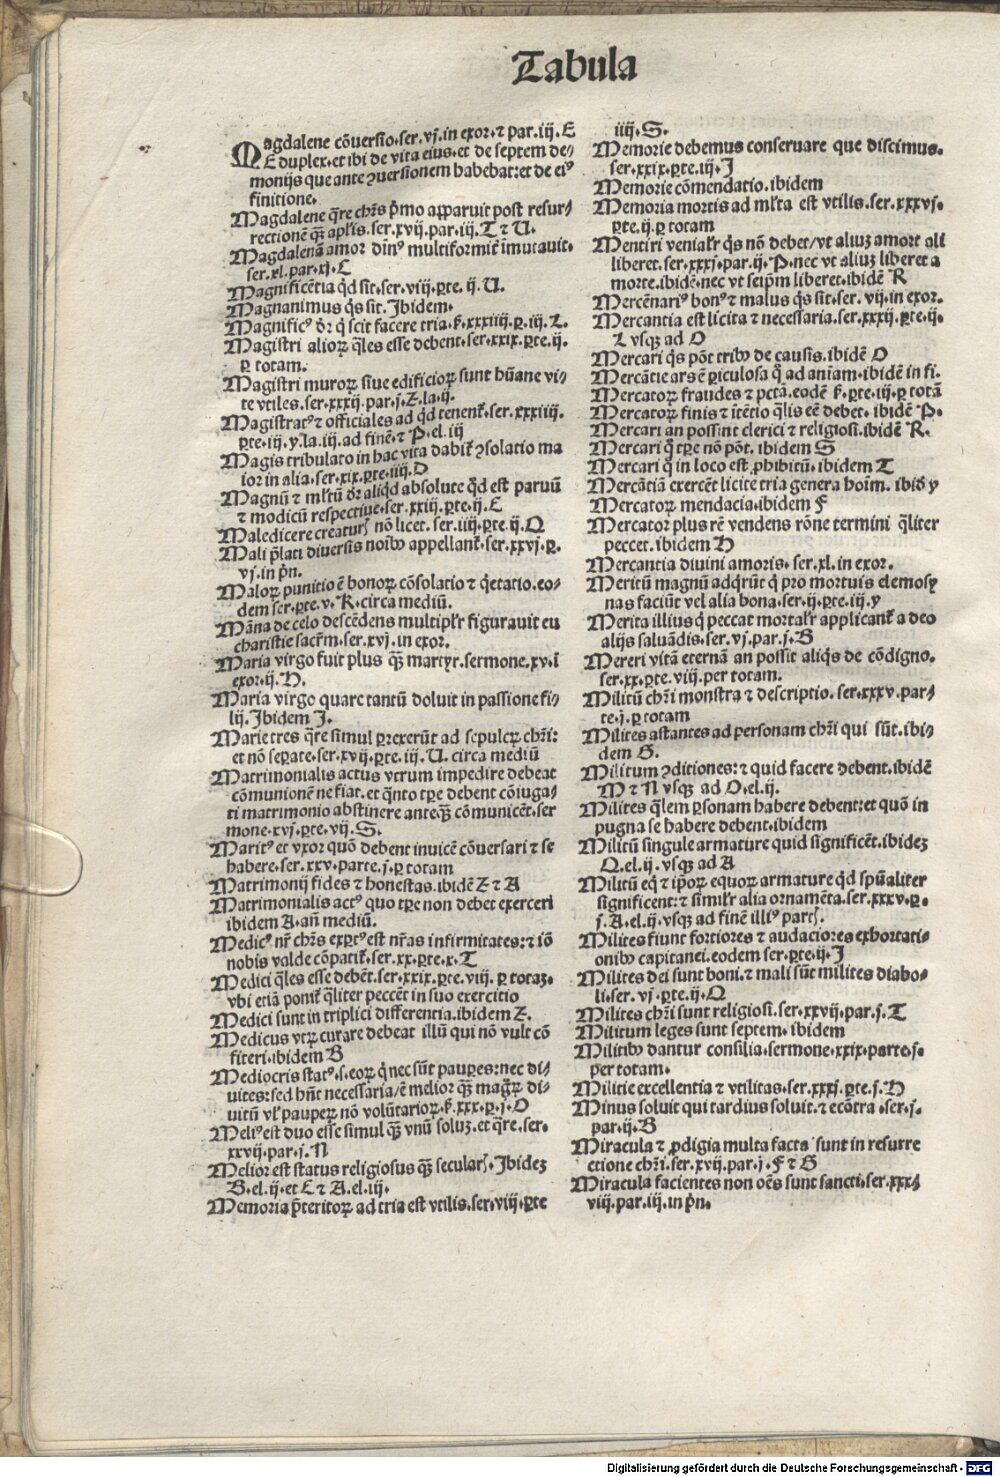 Tabula
Magdalene cõuersio.ser.vj.in exor.⁊ par.iij.E
E duplex.et ibi de vita eius.et de septem de⸗
monijs que ante ꝯuersionem habebat:et de eiꝰ
finitione.
Magdalene q̃re chr̃s p̃mo apparuit post resur⸗
rectionẽ q̃ꝫ apl̃is.ser.xvij.par.iij.T ⁊ U.
Magdalenã amor diuinꝰ multiformit̃ imutauit.
ser.xl.par.xj.C
Magnificẽtia qd̃ sit.ser.viij.ꝑte.ij.U.
Magnanimus q̃s sit.Ibidem.
Magnificꝰ dr̃ q̃ scit facere tria.ẜ.xxxiiij.p.iij.L.
Magistri alioꝝ q̃les esse debent.ser.xxix.ꝑte.ij.
ꝑ totam.
Magistri muroꝝ siue edificioꝝ sunt hũane vi⸗
te vtiles.ser.xxxij.par.j.Z.la.ij.
Magistratꝰ ⁊ officiales ad qd̃ tenent̃.ser.xxxiiij.
ꝑte.iij.y.la.iij.ad finẽ.⁊ P.el.iij
Magis tribulato in hac vita dabit̃ ꝯsolatio ma
ior in alia.ser.xix.ꝑte.iiij.D
Magnũ ⁊ ml̃tũ dr̃ aliqd̃ absolute q̃d est paruũ
⁊ modicũ respectiue.ser.xxiij.ꝑte.ij.E
Maledicere creaturꝭ nõ licet.ser.iiij.ꝑte.ij.Q
Mali p̃lati diuersis noĩbꝰ appellant̃.ser.xxvj.ꝑ.
vj.in pñ.
Maloꝝ punitio ẽ bonoꝝ cõsolatio ⁊ q̃etatio.eo⸗
dem ser.ꝑte.v.R.circa mediũ.
Mãna de celo descẽdens multipl̃r figurauit eu
charistie sacrm̃.ser.xvj.in exor.
Maria virgo fuit plus q̃ꝫ martyr.sermone.xv.ĩ
exor.ij.H.
Maria virgo quare tantũ doluit in passione fi⸗
lij.Ibidem I.
Marie tres q̃re simul ꝑrexerũt ad sepulcꝝ chr̃i:
et nõ seꝑate.ser.xvij.ꝑte.iij.U.circa mediũ
Matrimonialis actus vtrum impedire debeat
cõmunionẽ ne fiat.et q̃nto tꝑe debent cõiuga⸗
ti matrimonio abstinere anteq̃ꝫ cõmunicẽt.ser
mone.xvj.ꝑte.vij.S.
Maritꝰ et vxor quõ debent inuicẽ cõuersari ⁊ se
habere.ser.xxv.parte.j.ꝑ totam
Matrimonij fides ⁊ honestas.ibidẽ Z ⁊ A
Matrimonialis actꝰ quo tꝑe non debet exerceri
ibidem A.añ mediũ.
Medicꝰ nr̃ chr̃s exꝑtꝰ est nr̃as infirmitates:⁊ iõ
nobis valde cõpatit̃.ser.xx.ꝑte.x.T
Medici q̃les esse debẽt.ser.xxix.ꝑte.viij.ꝑ totaꝫ.
vbi etiã ponit̃ q̃liter peccẽt in suo exercitio
Medici sunt in triplici differentia.ibidem Z.
Medicus vtꝝ curare debeat illũ qui nõ vult cõ
fiteri.ibidem B
Mediocris statꝰ.s.eoꝝ q̃ nec sũt pauꝑes:nec di⸗
uites:sed hñt necessaria/ẽ melior q̃ꝫ magꝝ di⸗
uitũ vl̃ pauperũ nõ volũtarioꝝ.ẜ.xxx.ꝑ.j.O
Meliꝰ est duo esse simul q̃ꝫ vnũ soluꝫ.et q̃re.ser.
xxvij.par.j.N
Melior est status religiosus q̃ꝫ secularꝭ.Ibideꝫ
B.el.ij.et C ⁊ A.el.iij.
Memoria p̃teritoꝝ ad tria est vtilis.ser.viij.ꝑte
iiij.S.
Memorie debemus conseruare que discimus.
ser.xxix.ꝑte.iij.I
Memorie cõmendatio.ibidem
Memoria mortis ad ml̃ta est vtilis.ser.xxxvj.
ꝑte.ij.ꝑ totam
Mentiri venial̃r q̃s nõ debet/vt aliuꝫ amore ali
liberet.ser.xxxj.par.ij.P.nec vt aliuꝫ liberet a
morte.ibidẽ.nec vt seip̃m liberet.ibidẽ R
Mercẽnariꝰ bonꝰ ⁊ malus q̃s sit.ser.vij.in exor.
Mercantia est licita ⁊ necessaria.ser.xxxij.ꝑte.ij.
L vsqꝫ ad O
Mercari q̃s põt tribꝰ de causis.ibidẽ O
Mercãtie ars ẽ ꝑiculosa q̃ ad aniam.ibidẽ in fi.
Mercatoꝝ fraudes ⁊ pctã.eodẽ ẜ.ꝑte.iij.ꝑ totã
Mercatoꝝ finis ⁊ itẽtio q̃lis eẽ debet.ibidẽ P.
Mercari an possint clerici ⁊ religiosi.ibidẽ R.
Mercari q̃ tꝑe nõ põt.ibidem S
Mercari q̃ in loco est ꝓhibitũ.ibidem T
Mercãtiã exercẽt licite tria genera hoĩm.ibid̃ y
Mercatoꝝ mendacia.ibidem F
Mercator plus rẽ vendens rõne termini q̃liter
peccet.ibidem H
Mercantia diuini amoris.ser.xl.in exor.
Meritũ magnũ adq̃rũt q̃ pro mortuis elemosy
nas faciũt vel alia bona.ser.ij.ꝑte.iij.y
Merita illius q̃ peccat mortal̃r applicant̃ a deo
alijs saluãdis.ser.vj.par.j.B
Mereri vitã eternã an possit aliq̃s de cõdigno.
ser.xx.ꝑte.viij.per totam.
Militũ chr̃i monstra ⁊ descriptio.ser.xxxv.par⸗
te.j.ꝑ totam
Milites astantes ad personam chr̃i qui sũt.ibi⸗
dem G.
Militum ꝯditiones:⁊ quid facere debent.ibidẽ
M ⁊ N vsqꝫ ad O.el.ij.
Milites q̃lem ꝑsonam habere debent:et quõ in
pugna se habere debent.ibidem
Militũ singule armature quid significẽt.ibideꝫ
Q.el.ij.vsqꝫ ad A
Militũ eq̃ ⁊ ip̃oꝝ equoꝝ armature qd̃ spũaliter
significent:⁊ simil̃r alia ornamẽta.ser.xxxv.ꝑ.
j.A.el.ij.vsqꝫ ad finẽ illiꝰ partꝭ.
Milites fiunt fortiores ⁊ audaciores exhortati⸗
onibꝰ capitanei.eodem ser.ꝑte.ij.I
Milites dei sunt boni.⁊ mali sũt milites diabo⸗
li.ser.vj.ꝑte.ij.Q
Milites chr̃i sunt religiosi.ser.xxvij.par.j.T
Militum leges sunt septem.ibidem
Militibꝰ dantur consilia.sermone.xxix.parte.j.
per totam.
Militie excellentia ⁊ vtilitas.ser.xxxj.ꝑte.j.H
Minus soluit qui tardius soluit.⁊ ecõtra.ser.j.
par.ij.B
Miracula ⁊ ꝓdigia multa facta sunt in resurre
ctione chr̃i.ser.xvij.par.j.F ⁊ G
Miracula facientes non oẽs sunt sancti.ser.xxx⸗
viij.par.iij.in pñ.
Digitalisierung gefördert durch die Deutsche Forschungsgemeinschaft - DFG